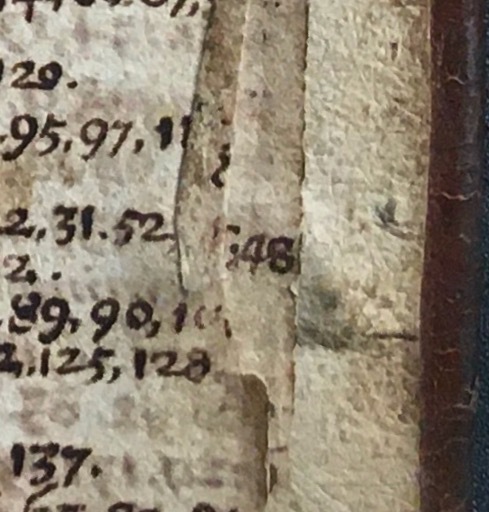 29.
95.97,11
2,31.52 ;48
2.
89,90,10
2,125,128
137.